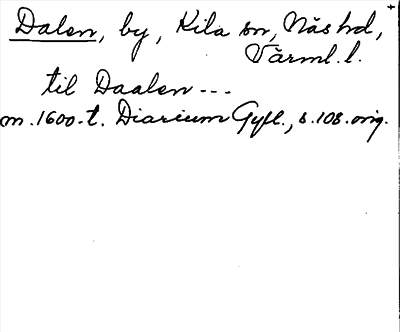 Dalen, by, Kila sn, Näs hd,
Värml. l.
til Daalen ---
m. 1600-t. Diarium Gyll., s. 108. orig.